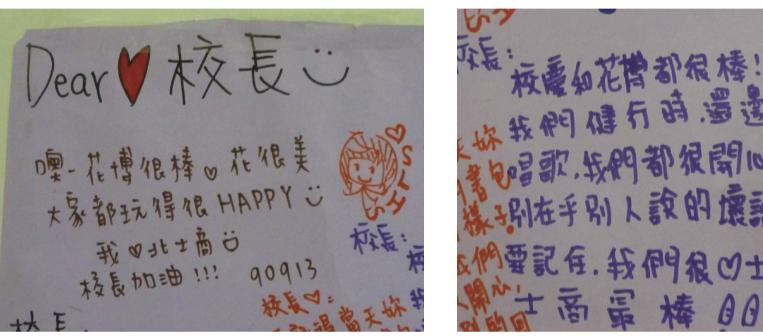 Dear ♥ 校長 :)
噢~花博很棒。花很美
大家都玩得很HAPPY :)
我♡北士商
校長加油!!! 90913
SLHS
校長:
校長♡:
當天妳
校長:
校慶和花博都很棒!
我們健行時,還邊
唱歌,我們都很開心
別在乎別人說的壞話
要記住,我們很♡士
士商最棒
天妳
書包
樣子。
我們
開心,